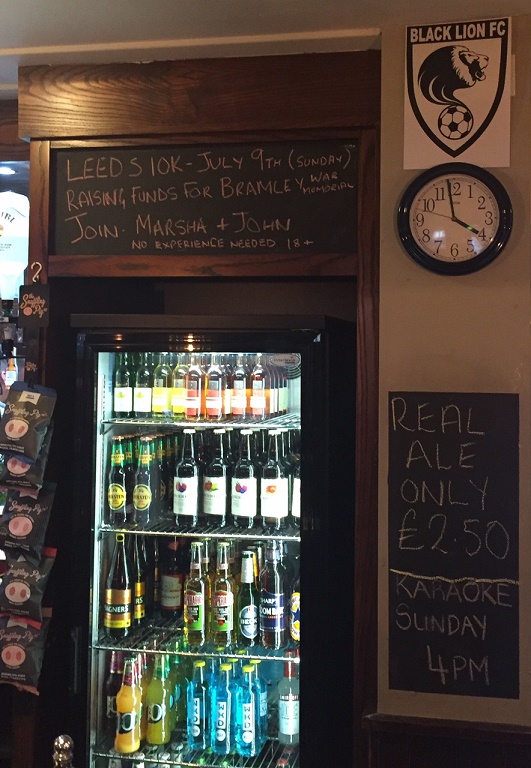 BLACK LION FC
LEEDS 10K - JULY 9TH (SUNDAY)
RAISING FUNDS FOR BRAMLEY WAR MEMORIAL
JOIN - MARSHA + JOHN
NO EXPERIENCE NEEDED 18+
12
1
2
3
4
5
6
7
8
9
10
11
REAL
ALE
ONLY
£2.50
KARAOKE
SUNDAY
4PM
WKD
WKD